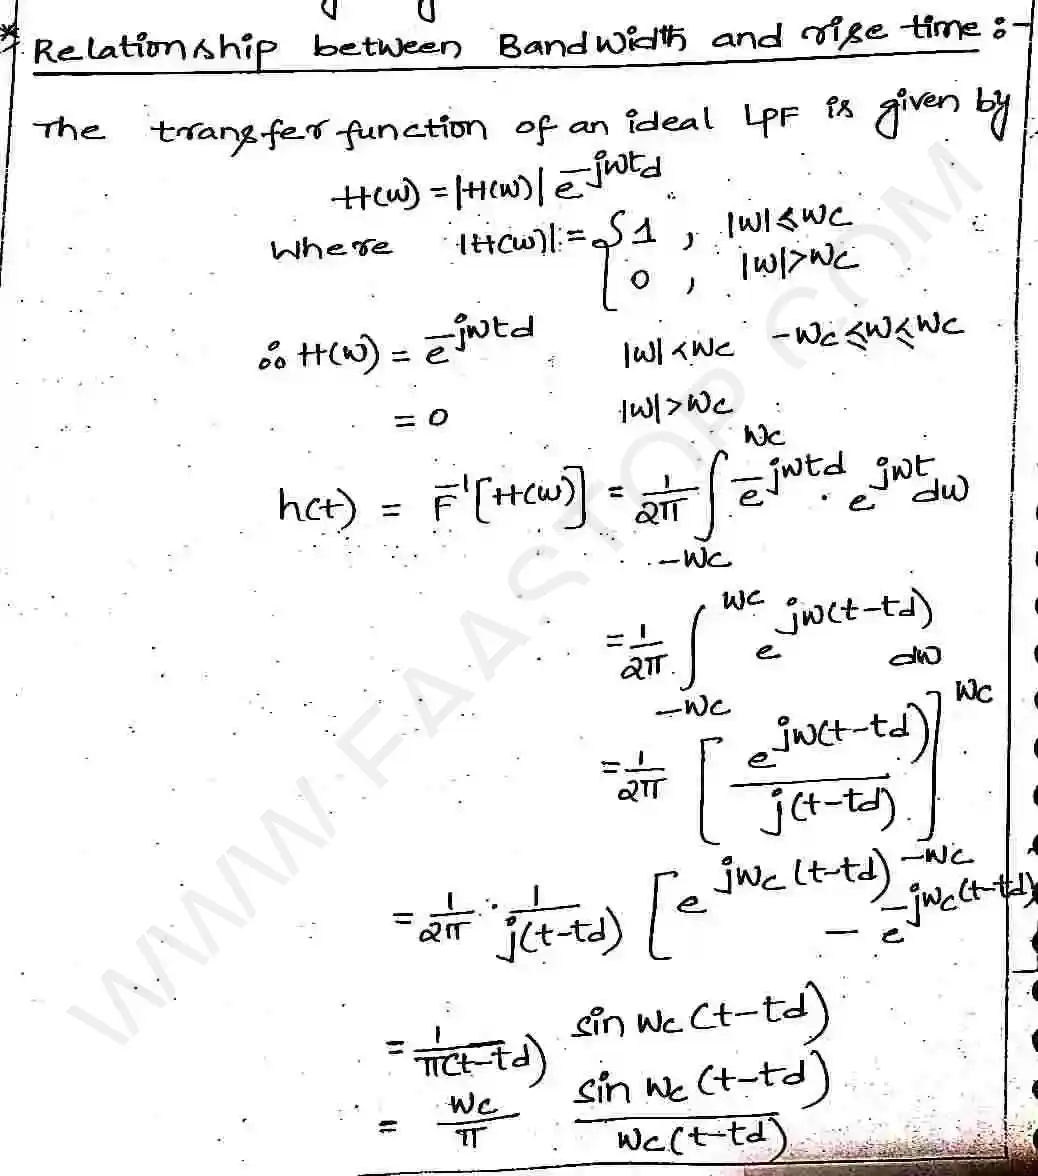 * Relationship between Bandwidth and rise time :-
The transfer function of an ideal LPF is given by
H(w) = |H(w)| e^-jwtd
Where |H(w)| = { 1 , |w| ≤ wc
0 , |w| > wc
∴ H(w) = e^-jwtd |w| < wc -wc ≤ w ≤ wc
= 0 |w| > wc
h(t) = F^-1 [H(w)] = 1/2π ∫_-wc^wc e^-jwtd . e^jwt dw
= 1/2π ∫_-wc^wc e^jw(t-td) dw
= 1/2π [ e^jw(t-td) / j(t-td) ]_-wc^wc
= 1/2π . 1/j(t-td) [ e^jwc(t-td) - e^-jwc(t-td)
= 1/π(t-td) sin wc (t-td)
= wc/π sin wc (t-td) / wc(t-td)
WWW.FAASTOP.COM